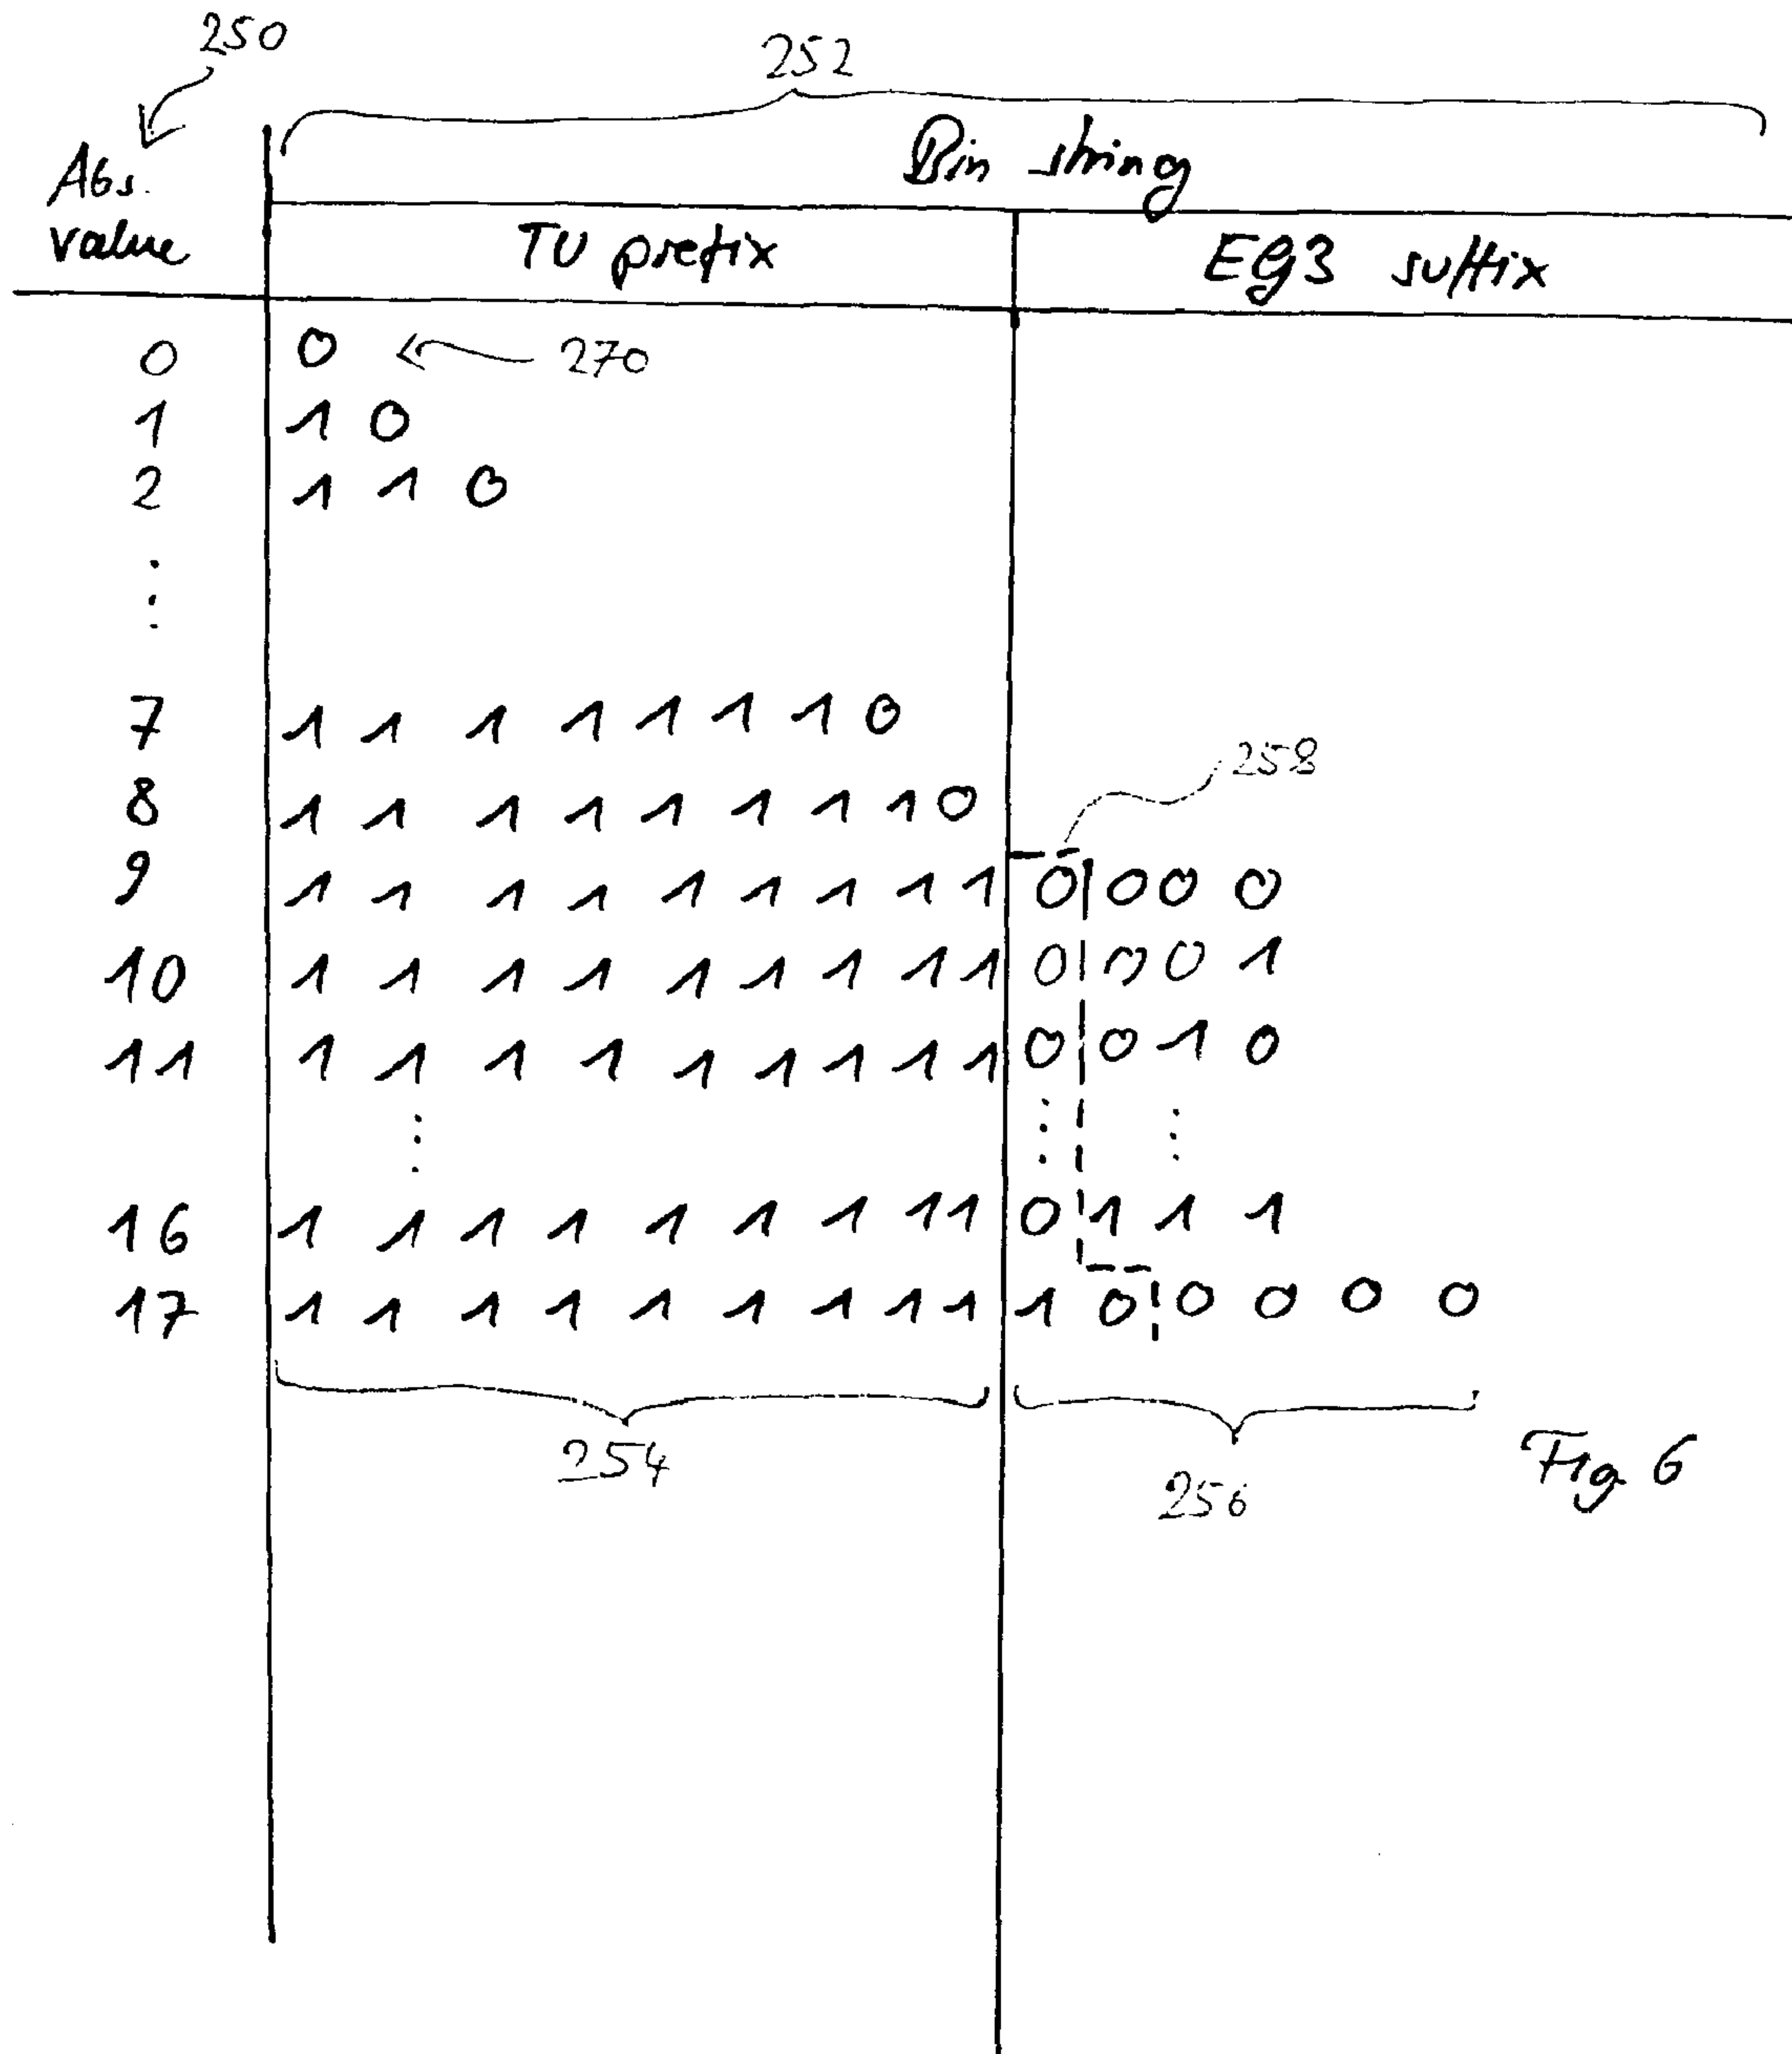 250
252
Abs. value
Bin string
TU prefix
EG3 suffix
0 0 270
1 1 0
2 1 1 0
⋮
7 1 1 1 1 1 1 1 0
258
8 1 1 1 1 1 1 1 1 0
9 1 1 1 1 1 1 1 1 1 0 0 0 0
10 1 1 1 1 1 1 1 1 1 0 0 0 1
11 1 1 1 1 1 1 1 1 1 0 0 1 0
⋮ ⋮ ⋮
16 1 1 1 1 1 1 1 1 1 0 1 1 1
17 1 1 1 1 1 1 1 1 1 1 0 0 0 0 0
254
256
Fig. 6